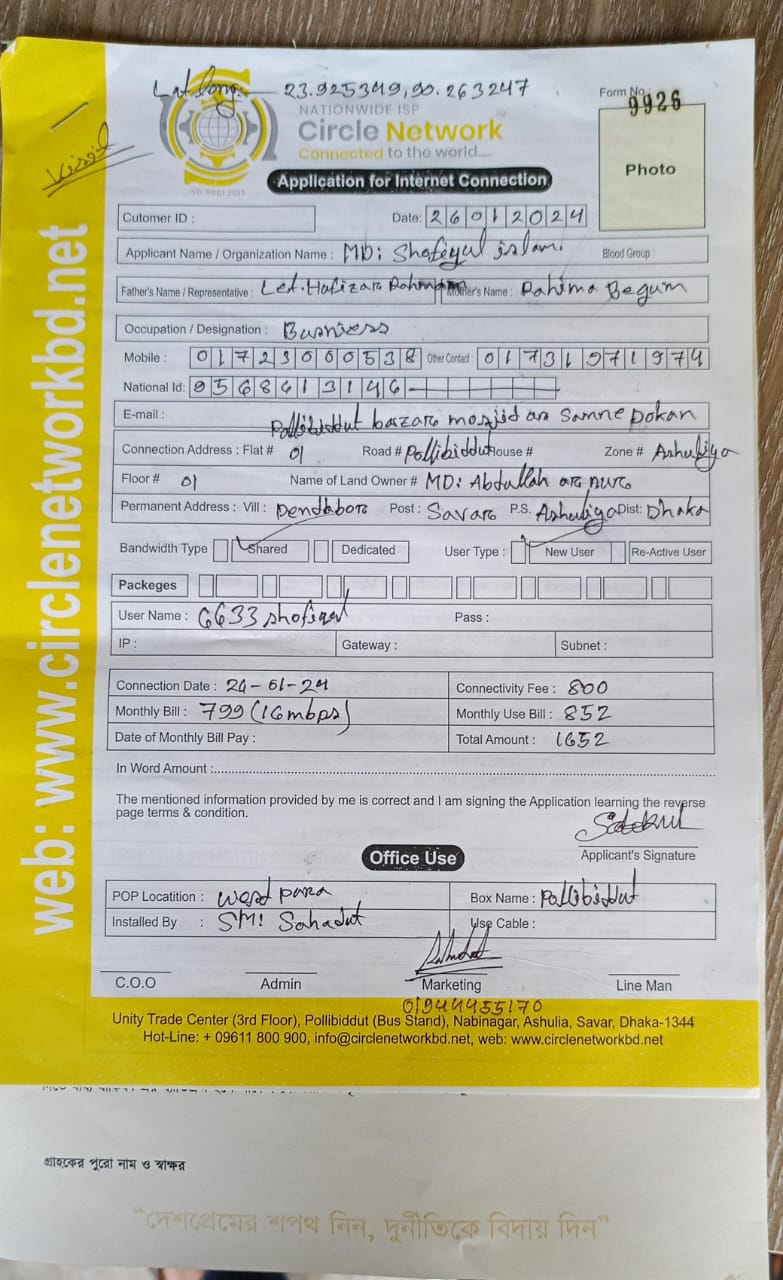 Lat long - 23.925349, 90.263247
NATIONWIDE ISP
Circle Network
Connected to the world....
ISO 9001:2015
Form No. 9926
Photo
Application for Internet Connection
Cutomer ID :
Date: 26012024
Applicant Name / Organization Name : MD: Shofiqul islam. Blood Group :
Father's Name / Representative : Let. Hafizar Rahman Mother's Name : Rahima Begum
Occupation / Designation : Busniess
Mobile : 01723000538 Other Contact : 01731971974
National Id: 9568613146
E-mail :
Pollibiddut bazar mosjid ar Samne Dokan
Connection Address : Flat # 01 Road # Pollibiddut House # Zone # Ashuliya
Floor # 01 Name of Land Owner # MD: Abdullah ar nur
Permanent Address : Vill : Dendabor Post : Savar P.S. Ashuliya Dist: Dhaka
Bandwidth Type Shared Dedicated User Type : New User Re-Active User
Packeges
User Name : 6633 shofiqul Pass :
IP : Gateway : Subnet :
Connection Date : 24-01-24 Connectivity Fee : 800
Monthly Bill : 799 (16mbps) Monthly Use Bill : 852
Date of Monthly Bill Pay : Total Amount : 1652
In Word Amount :
The mentioned information provided by me is correct and I am signing the Application learning the reverse
page terms & condition.
Applicant's Signature
Office Use
POP Locatition : west para Box Name : Pollibiddut
Installed By : SM! Sahadut Use Cable :
C.O.O Admin Marketing Line Man
01944455170
Unity Trade Center (3rd Floor), Pollibiddut (Bus Stand), Nabinagar, Ashulia, Savar, Dhaka-1344
Hot-Line: + 09611 800 900, info@circlenetworkbd.net, web: www.circlenetworkbd.net
web: www.circlenetworkbd.net
গ্রাহকের পুরো নাম ও স্বাক্ষর
“দেশপ্রেমের শপথ নিন, দুর্নীতিকে বিদায় দিন”